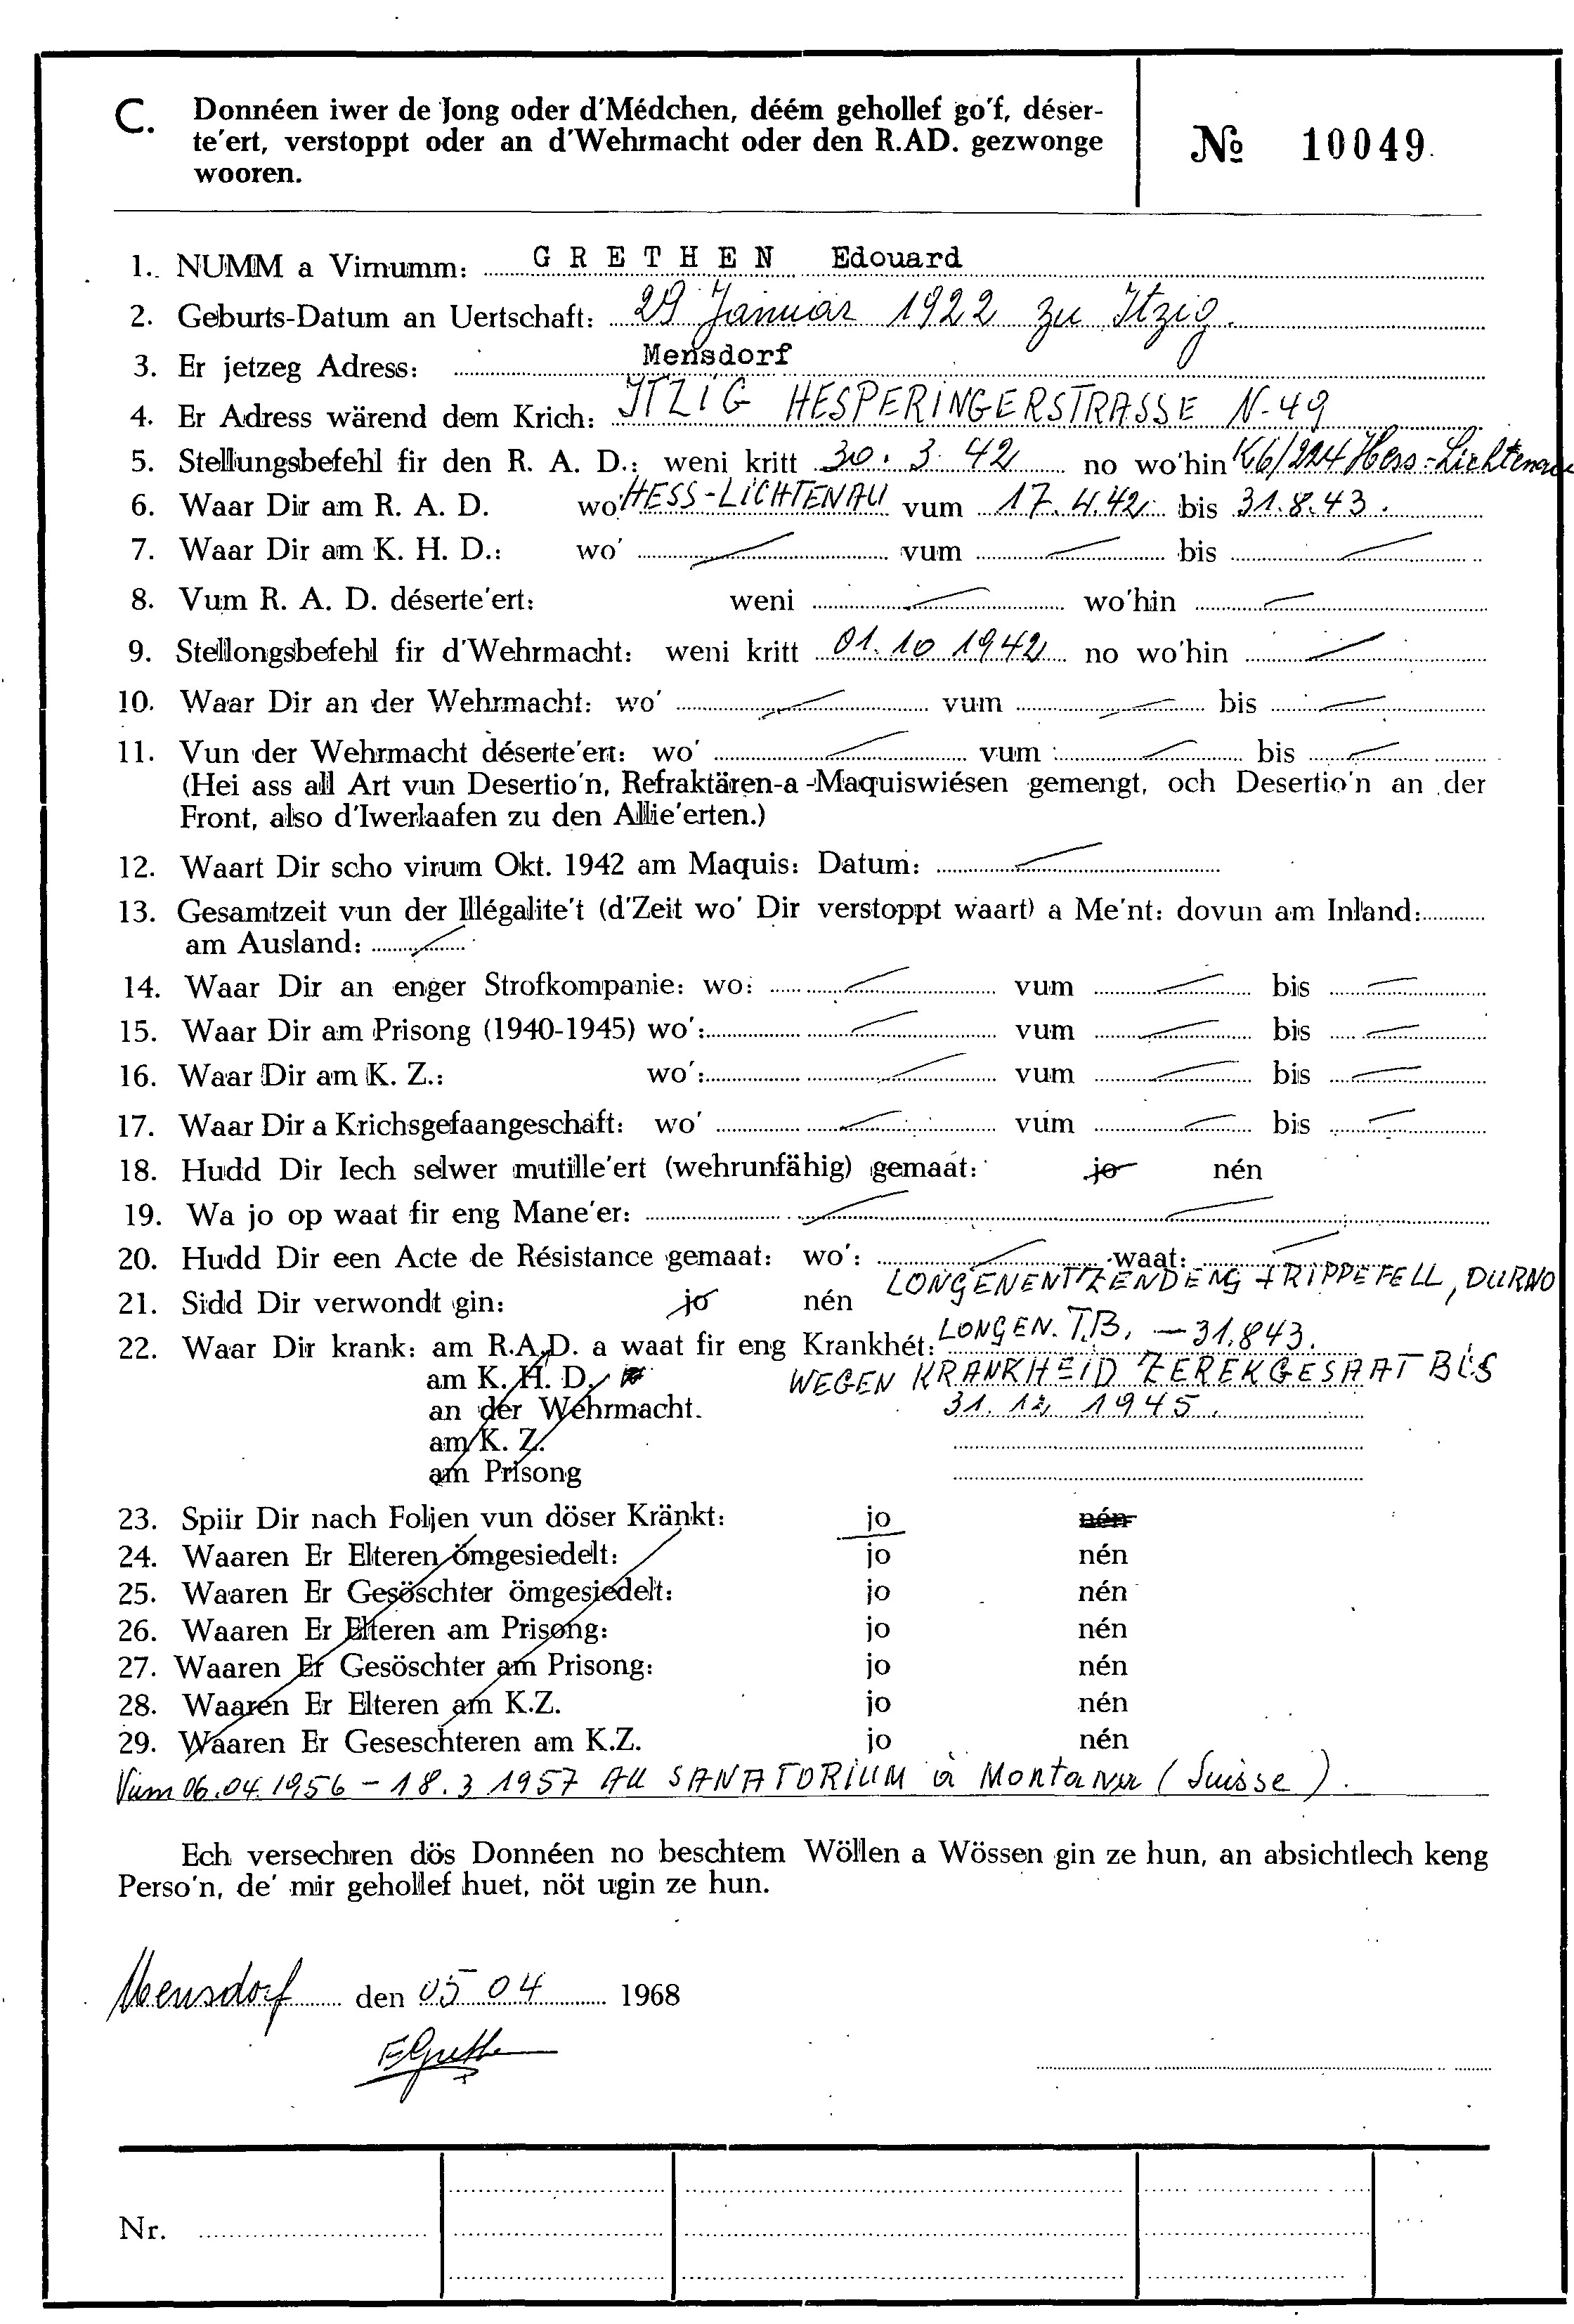 C. Donnéen iwer de Jong oder d'Médchen, déém gehollef go'f, déser-
te'ert, verstoppt oder an d'Wehrmacht oder den R.AD. gezwonge
wooren.
№ 10049
1. NUMM a Virnumm: GRETHEN Edouard
2. Geburts-Datum an Uertschaft: 29 Januar 1922 zu Itzig.
3. Er jetzeg Adress: Mensdorf
4. Er Adress wärend dem Krich: ITZIG HESPERINGERSTRASSE N-49
5. Stellungsbefehl fir den R. A. D.: weni kritt 30. 3 42 no wo'hin K6/224 Hess-Lichtenau
6. Waar Dir am R. A. D. wo' HESS-LICHTENAU vum 17.4.42 bis 31.8.43.
7. Waar Dir am K. H. D.: wo' vum bis
8. Vum R. A. D. déserte'ert: weni wo'hin
9. Stellongsbefehl fir d'Wehrmacht: weni kritt 01.10 1942 no wo'hin
10. Waar Dir an der Wehrmacht: wo' vum bis
11. Vun der Wehrmacht déserte'ert: wo' vum bis
(Hei ass all Art vun Desertio'n, Refraktären-a-Maquiswiésen gemengt, och Desertio'n an der
Front, also d'Iwerlaafen zu den Allie'erten.)
12. Waart Dir scho virum Okt. 1942 am Maquis: Datum:
13. Gesamtzeit vun der Illégalite't (d'Zeit wo' Dir verstoppt waart) a Me'nt: dovun am Inland:
am Ausland:
14. Waar Dir an enger Strofkompanie: wo: vum bis
15. Waar Dir am Prisong (1940-1945) wo': vum bis
16. Waar Dir am K. Z.: wo': vum bis
17. Waar Dir a Krichsgefaangeschaft: wo' vum bis
18. Hudd Dir Iech selwer mutille'ert (wehrunfähig) gemaat: jo nén
19. Wa jo op waat fir eng Mane'er:
20. Hudd Dir een Acte de Résistance gemaat: wo': waat:
LONGENENTZENDENG + RIPPEFELL, DURNO
21. Sidd Dir verwondt gin: jo nén
22. Waar Dir krank: am R.A.D. a waat fir eng Krankhét: LONGEN. T.B. - 31.843.
am K. H. D. WEGEN KRANKHEID ZEREKGESAAT BIS
an der Wehrmacht. 31. 12 1945.
am K. Z.
am Prisong
23. Spiir Dir nach Foljen vun döser Kränkt: jo nén
24. Waaren Er Elteren ömgesiedelt: jo nén
25. Waaren Er Gesöschter ömgesiedelt: jo nén
26. Waaren Er Elteren am Prisong: jo nén
27. Waaren Er Gesöschter am Prisong: jo nén
28. Waaren Er Elteren am K.Z. jo nén
29. Waaren Er Geseschteren am K.Z. jo nén
Vum 06.04.1956 - 18.3 1957 AU SANATORIUM à Montana (Suisse).
Ech versechren dös Donnéen no beschtem Wöllen a Wössen gin ze hun, an absichtlech keng
Perso'n, de' mir gehollef huet, nöt ugin ze hun.
Mensdorf den 05 04 1968
Nr.